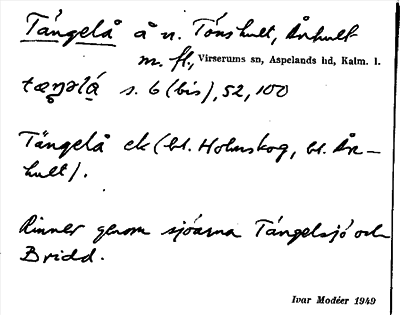 Tängelå å n. Tönshult, Århult
m. fl., Virserums sn, Aspelands hd, Kalm. l.
tæŋəlå s. 6 (bis), 52, 100
Tängelå ek (bl. Holmskog, bl. År-
hult).
Rinner genom sjöarna Tängelsjö och
Bridd.
Ivar Modéer 1949